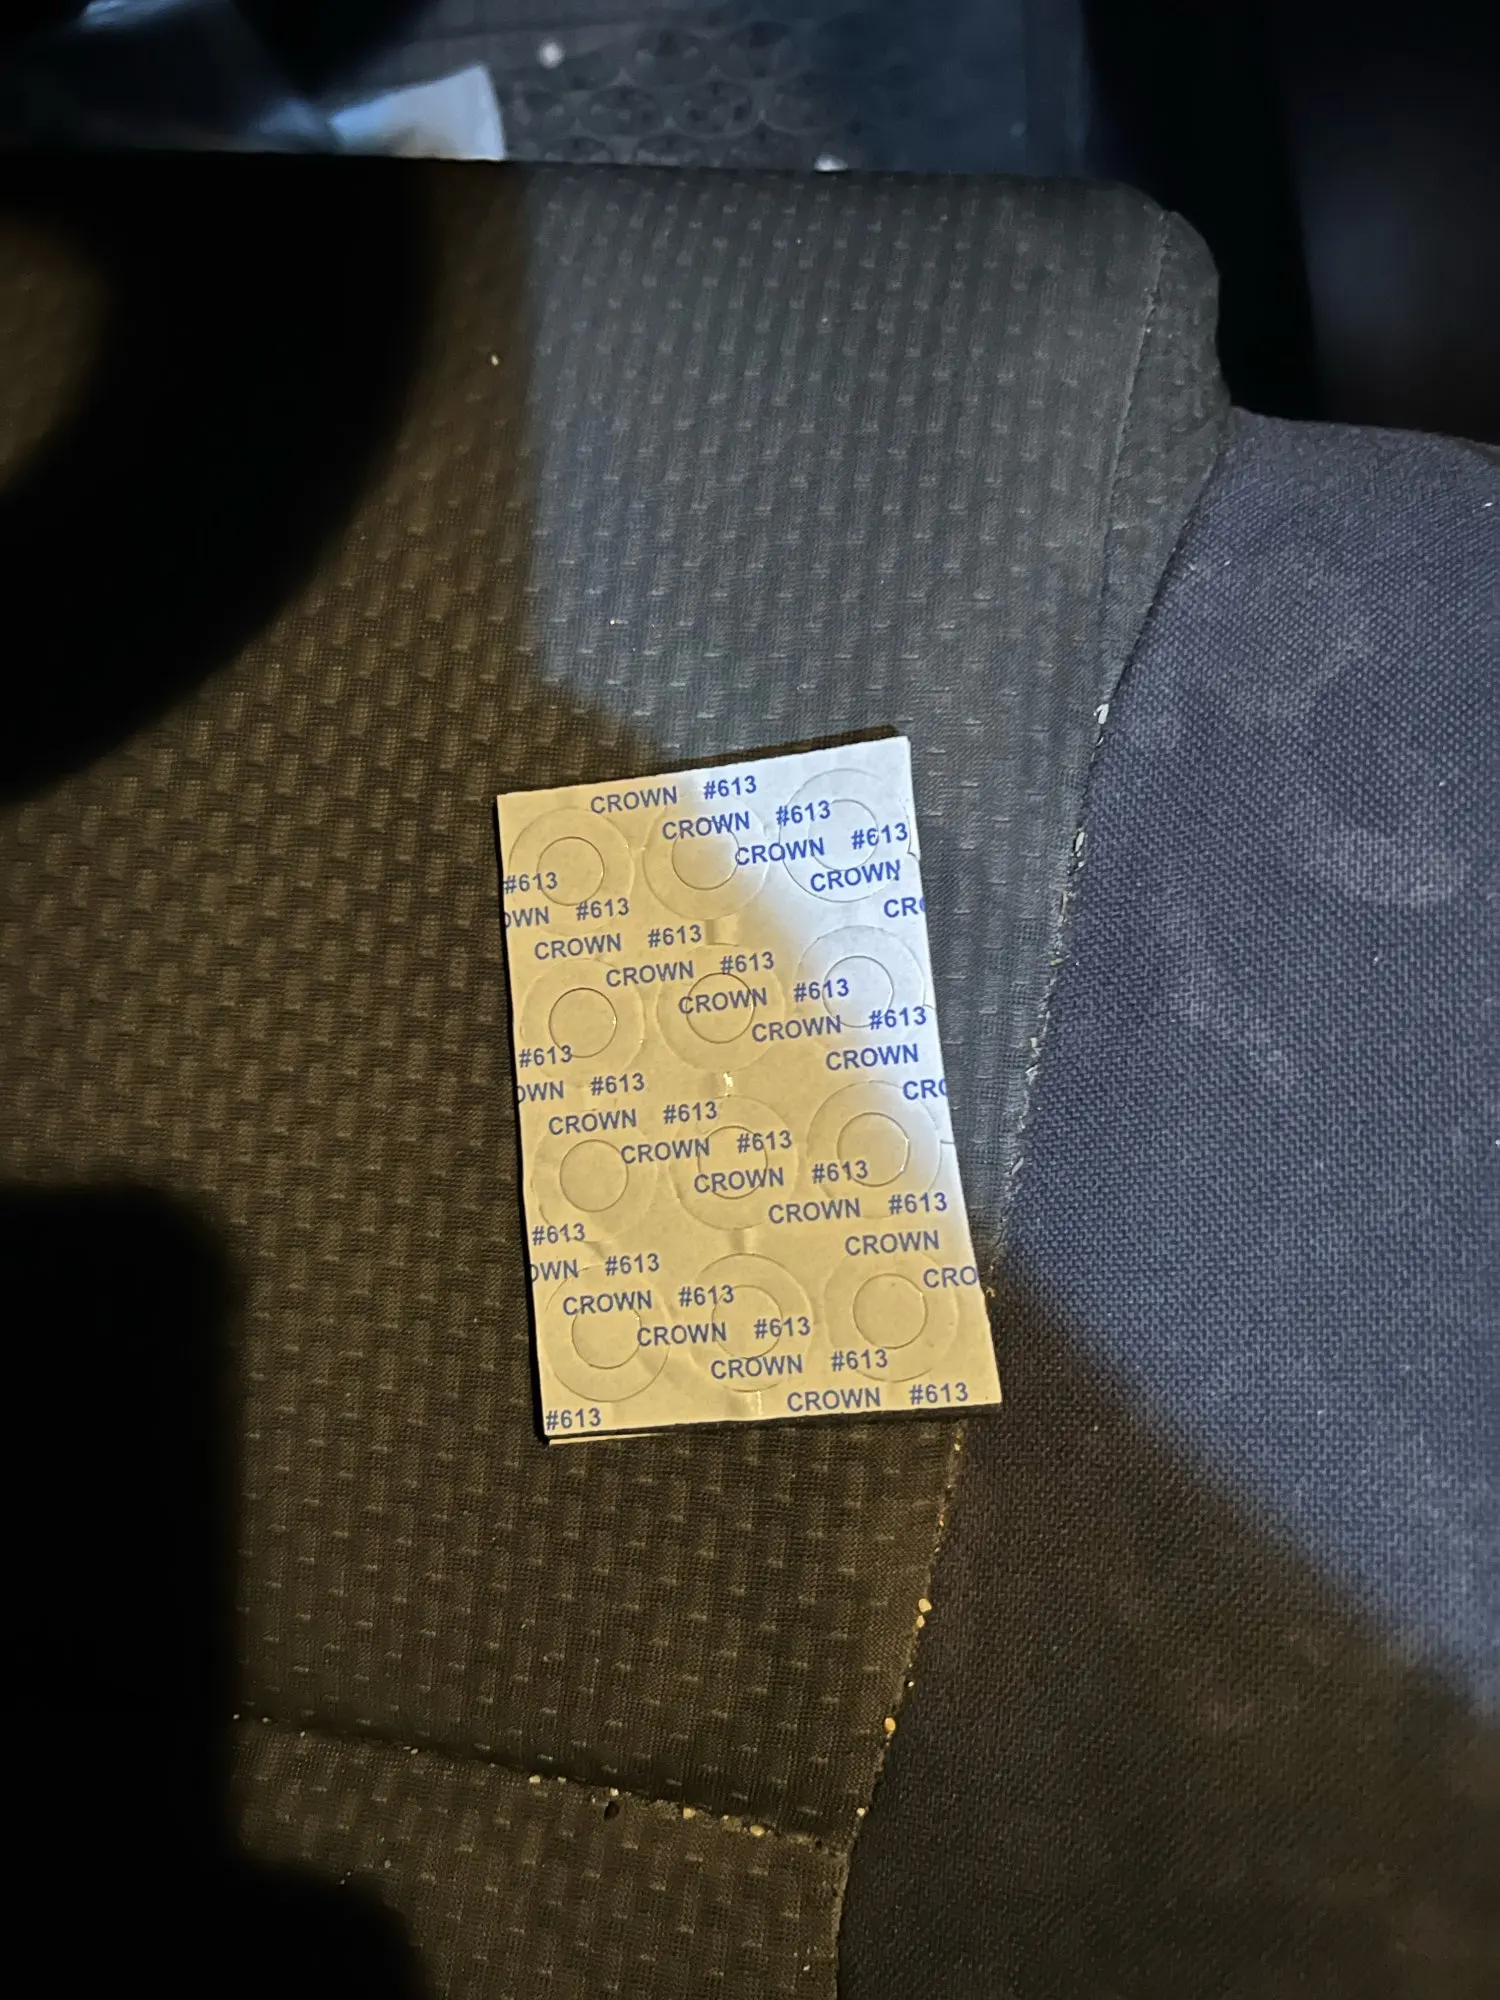 CROWN #613
CROWN #613
CROWN #613
#613 CROWN
OWN #613 CR
CROWN #613
CROWN #613
CROWN #613
#613 CROWN #613
OWN #613 CROWN
CROWN #613 CR
CROWN #613
CROWN #613
#613 CROWN #613
OWN #613 CROWN
CROWN #613 CRO
CROWN #613
CROWN #613
#613 CROWN #613